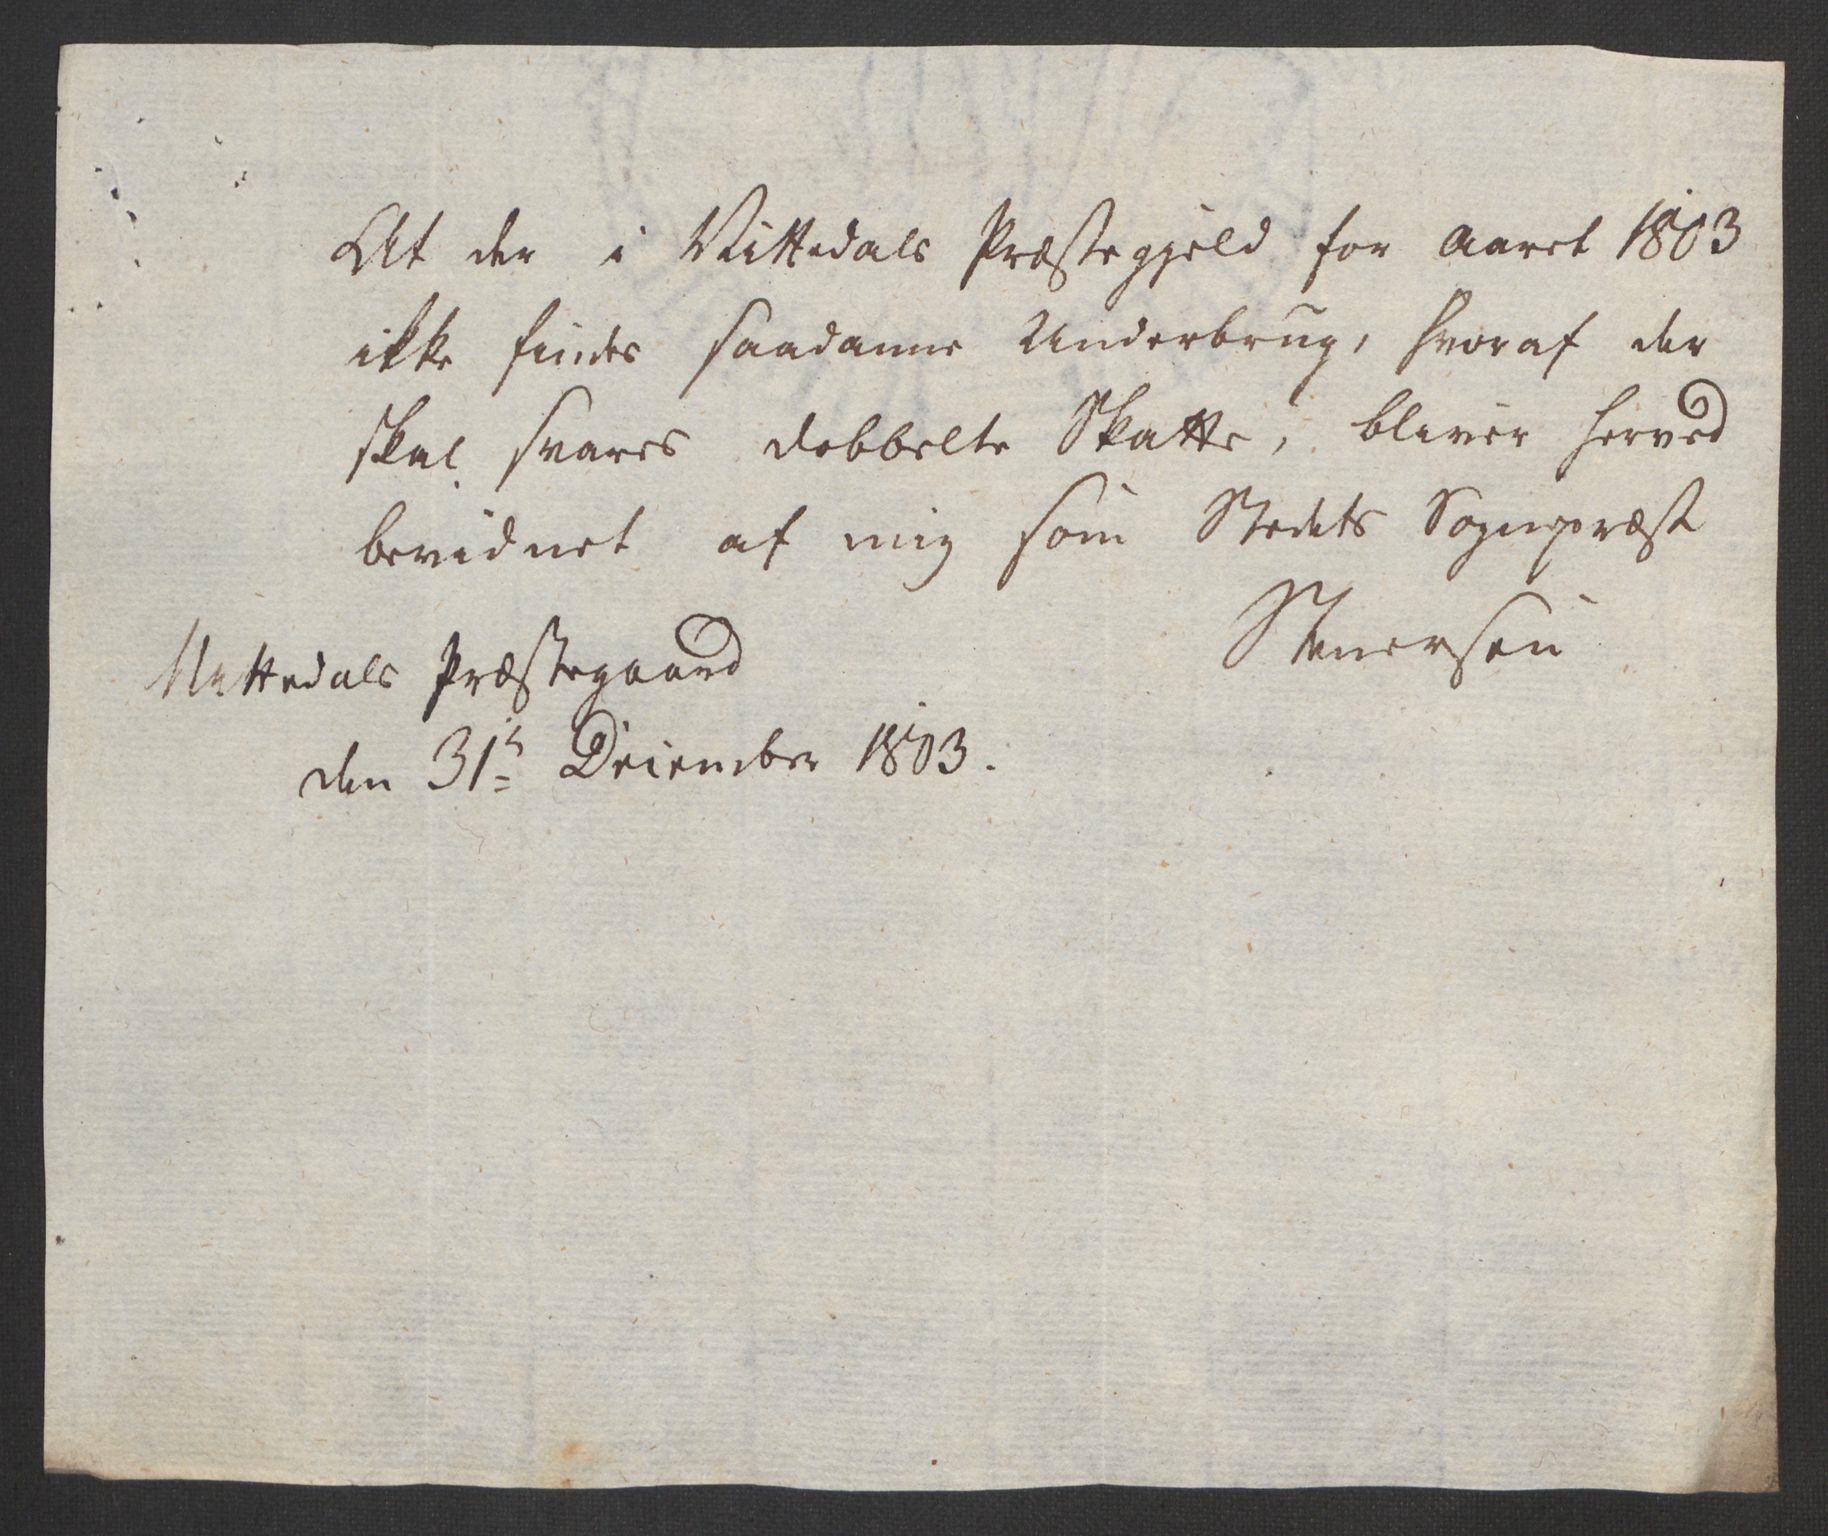 At der i Nittedals Præstegjeld for Aaret 1803
ikke findes saadanne Underbrug, hvoraf der
skal svares dobbelte Skatte, bliver herved
bevidnet af mig som Stedets Sognepræst
Stenersen
Nittedals Præstegaard
den 31te December 1803.